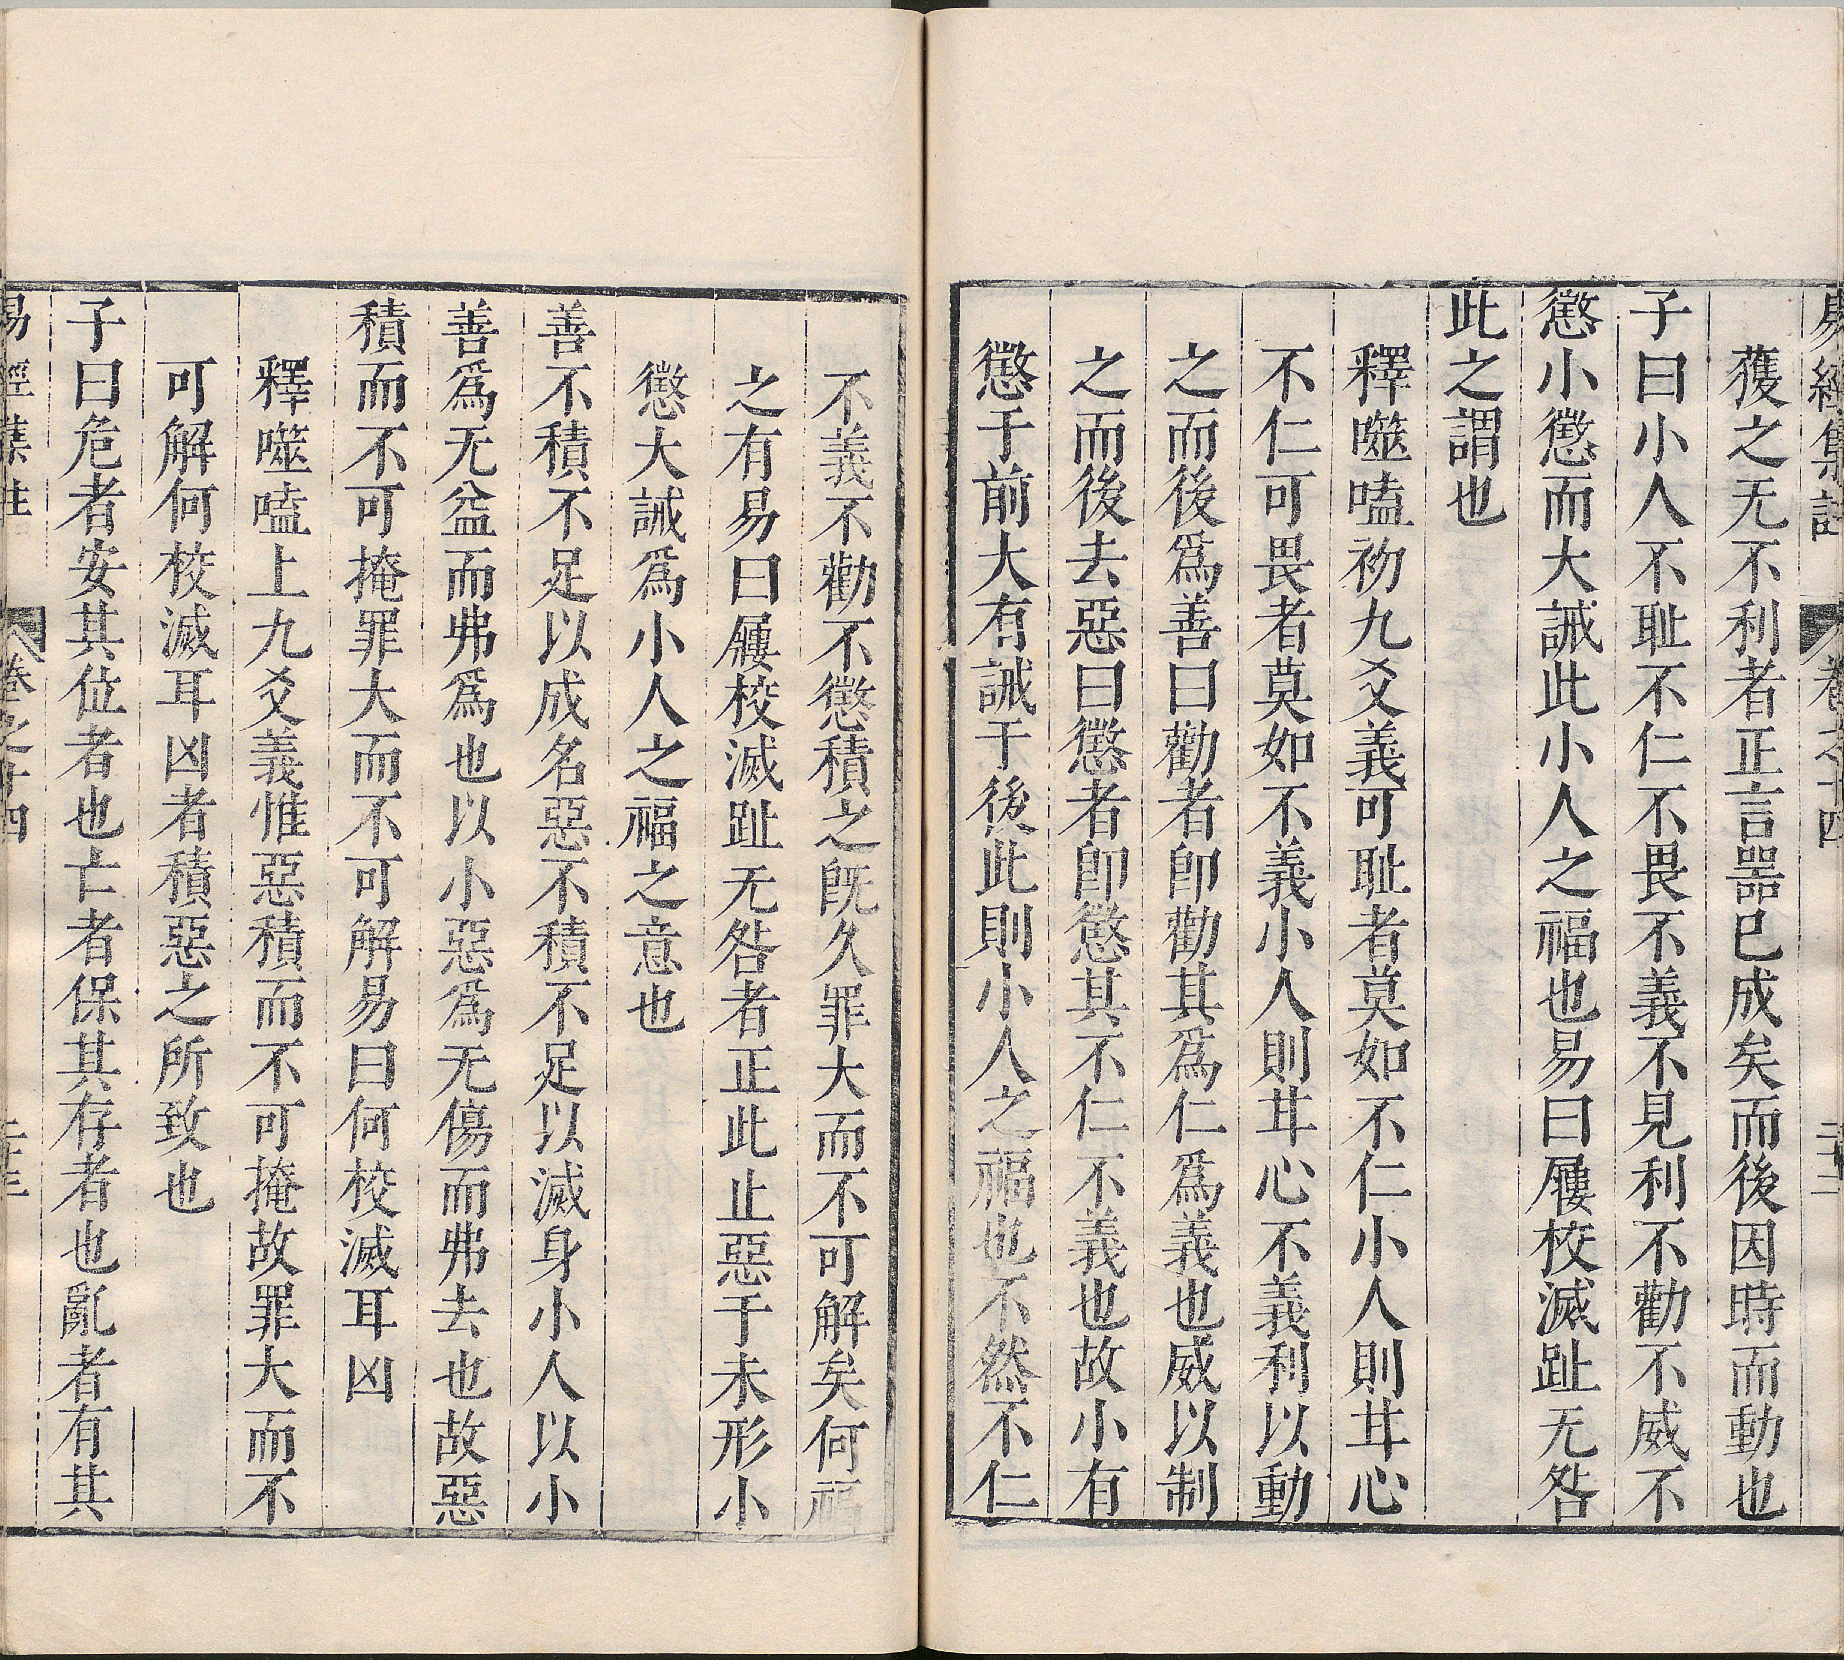 易經集註 卷之十四 二十二
獲之无不利者正言器已成矣而後因時而動也
子曰小人不耻不仁不畏不義不見利不勸不威不
懲小懲而大誡此小人之福也易曰屨校滅趾无咎
此之謂也
釋噬嗑初九爻義可耻者莫如不仁小人則甘心
不仁可畏者莫如不義小人則甘心不義利以動
之而後爲善曰勸者卽勸其爲仁爲義也威以制
之而後去惡曰懲者卽懲其不仁不義也故小有
懲于前大有誡于後此則小人之福也不然不仁
不義不勸不懲積之既久罪大而不可解矣何福
之有易曰屨校滅趾无咎者正此止惡于未形小
懲大誡爲小人之福之意也
善不積不足以成名惡不積不足以滅身小人以小
善爲无益而弗爲也以小惡爲无傷而弗去也故惡
積而不可掩罪大而不可解易曰何校滅耳凶
釋噬嗑上九爻義惟惡積而不可掩故罪大而不
可解何校滅耳凶者積惡之所致也
子曰危者安其位者也亡者保其存者也亂者有其
易經集註 卷之十四 二十三